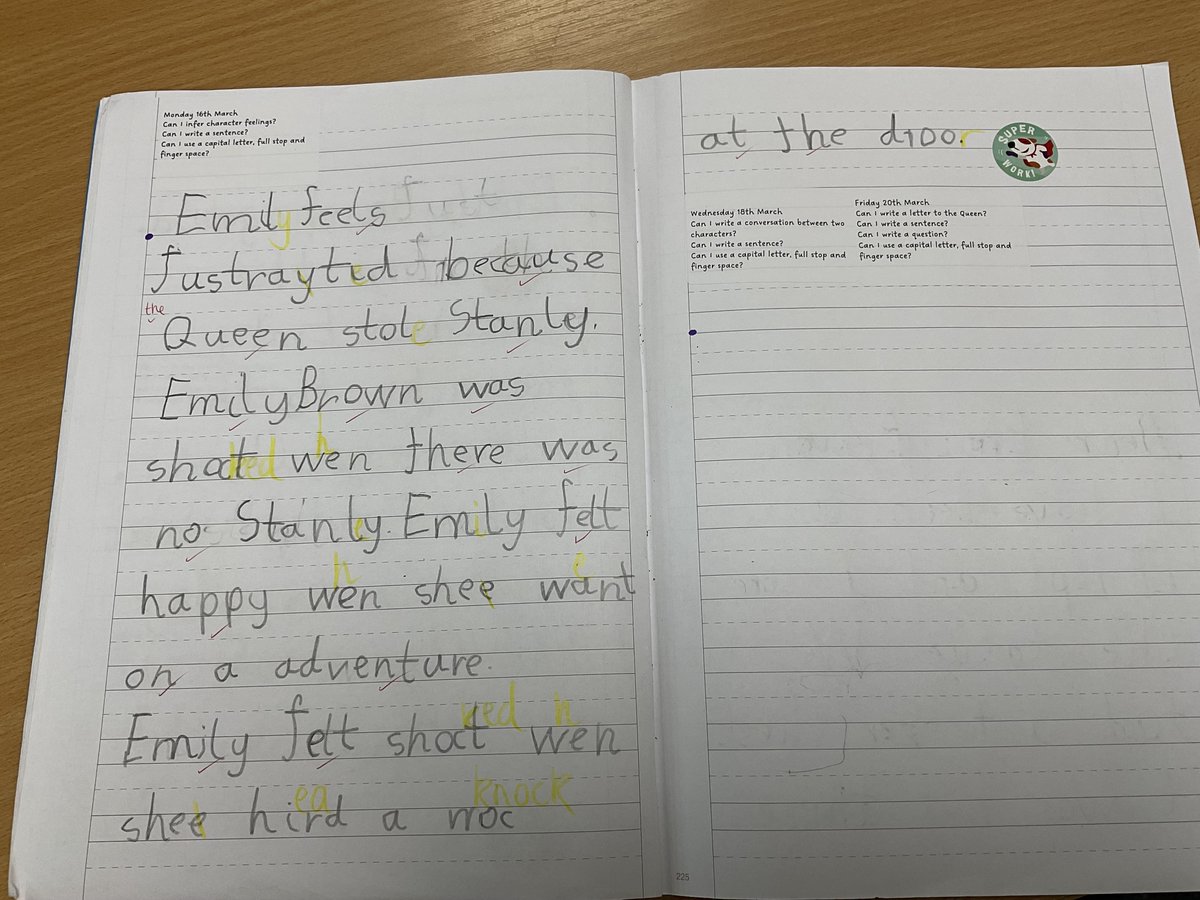 Monday 16th March
Can I infer character feelings?
Can I write a sentence?
Can I use a capital letter, full stop and
finger space?
Emily feels
fustrayted because
the
Queen stole Stanly.
Emily Brown was
shoct wen there was
no Stanley. Emily felt
happy wen shee want
on a adventure.
ked h
Emily felt shoct wen
ea knock
shee hird a noc
at the door.
SUPER WORK!
Wednesday 18th March
Can I write a conversation between two
characters?
Can I write a sentence?
Can I use a capital letter, full stop and
finger space?
Friday 20th March
Can I write a letter to the Queen?
Can I write a sentence?
Can I write a question?
Can I use a capital letter, full stop and
finger space?
225